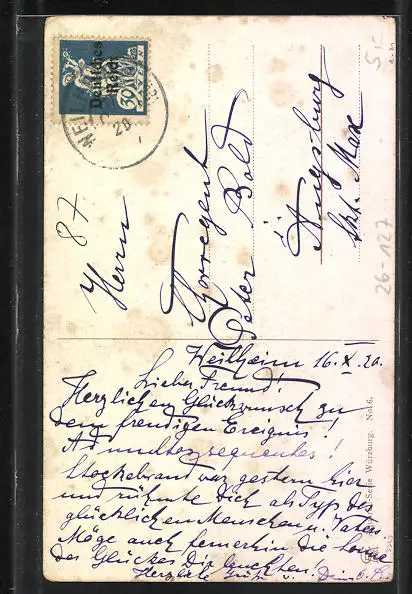 Deutsches
Reich
30
WEIL
28
5,-
87
26-127
Herrn
Chorregent
Peter Bold
Augsburg
St. Max
Weilheim 16.X.20.
Lieber Freund!
Herzlichen Glückwunsch zu
dem freudigen Ereignis!
Ad multos sequentes!
Stockebrand war gestern hier
und rühmte Dich als Typ des
glücklichen Menschen u. Vaters
Möge auch fernerhin die Sonne
des Glückes Dir leuchten!
Herzliche Grüße u. Dein
Serie Würzburg. No. 6.